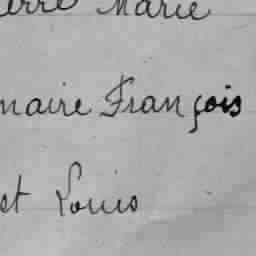 erre Marie
naire François
st Louis